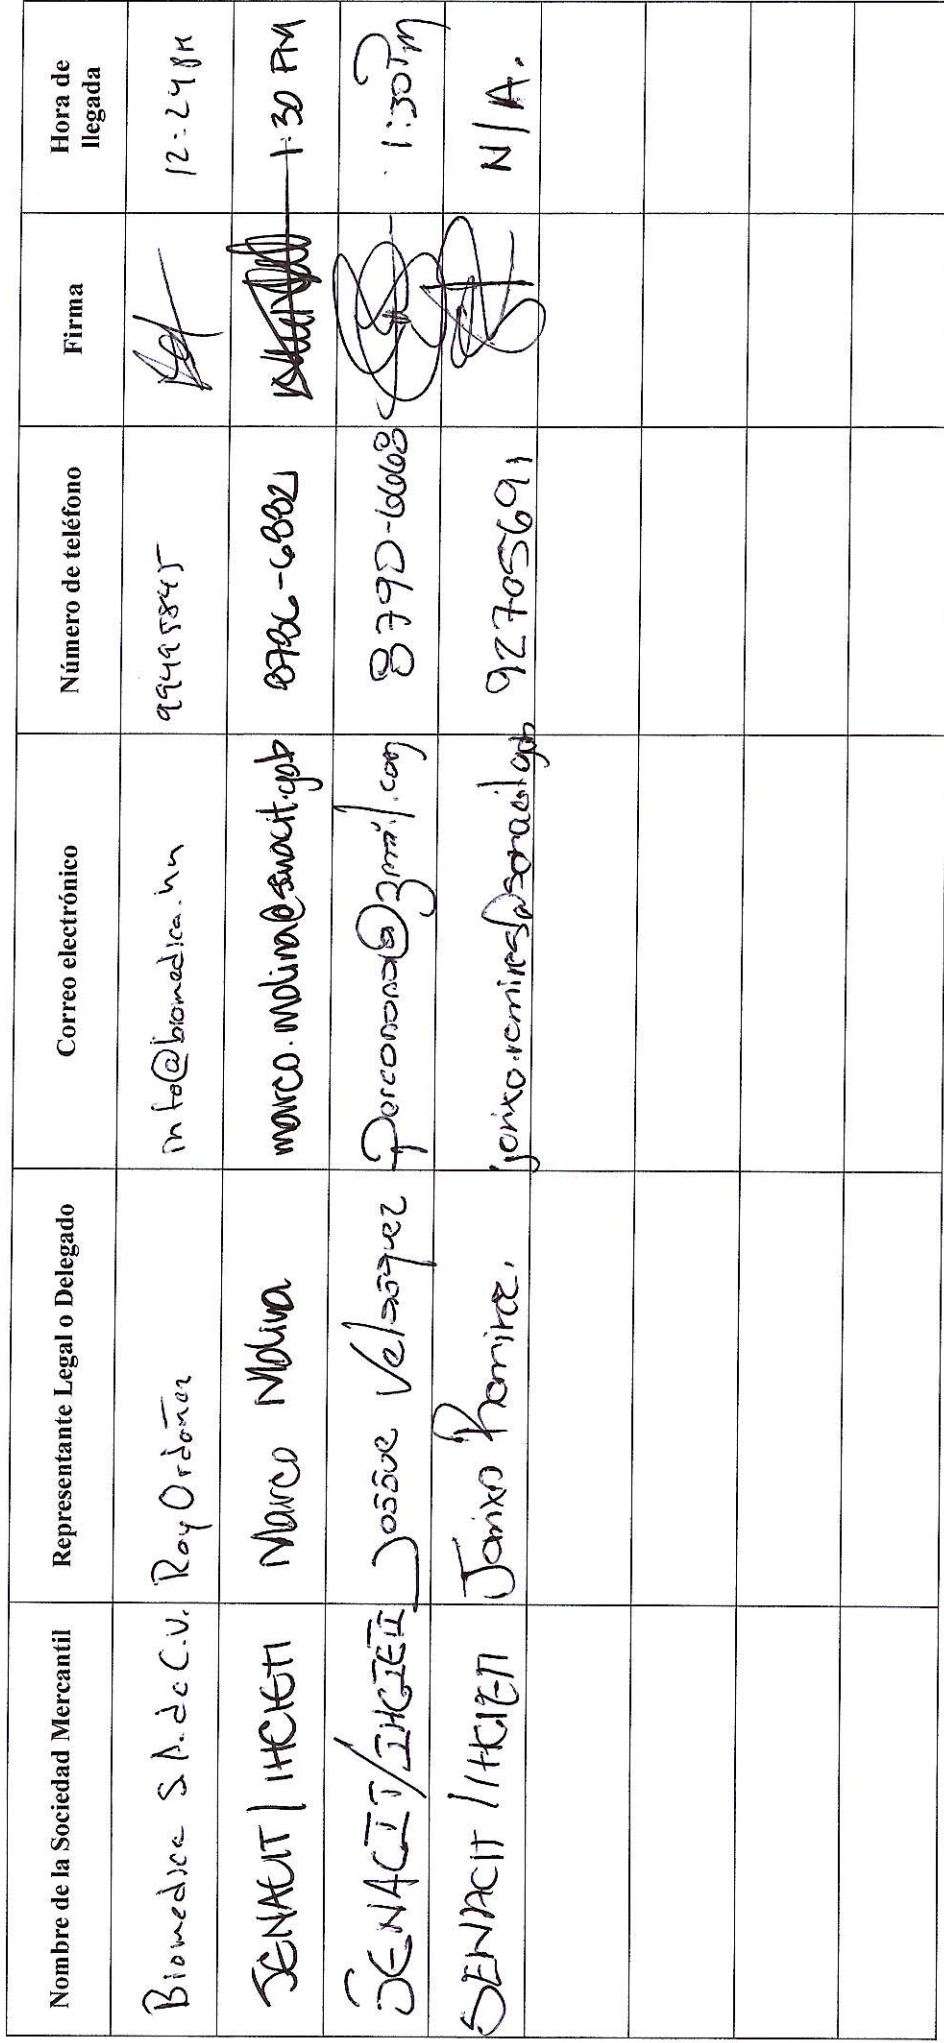 Nombre de la Sociedad Mercantil Representante Legal o Delegado Correo electrónico Número de teléfono Firma Hora de llegada
Biomedica S.A. de C.V. Roy Ordoñez info@biomedica.hn 99495845 12:24 PM
SENACIT / IHCIETI Marco Molina marco.molina@senacit.gob 1:30 PM
SENACIT/IHCIETI Josue Velasquez @gmail.com 8790-6668 1:30 Pm
SENACIT / IHCIETI Ramirez 92705691 N/A.